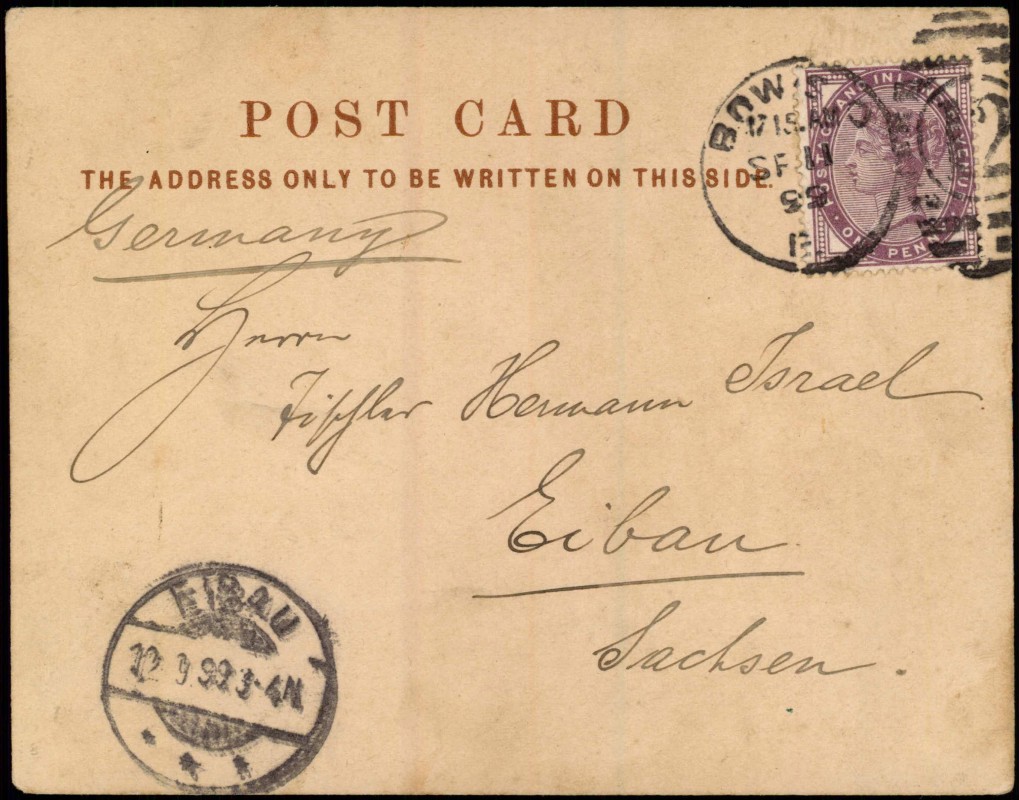 POST CARD
THE ADDRESS ONLY TO BE WRITTEN ON THIS SIDE.
Germany
Herrn
Tischler Hermann Israel
Eibau
Sachsen.
BOW
SP 11
99
E.
POSTAGE AND INLAND REVENUE
ONE PENNY
EIBAU
9 99 3-4N